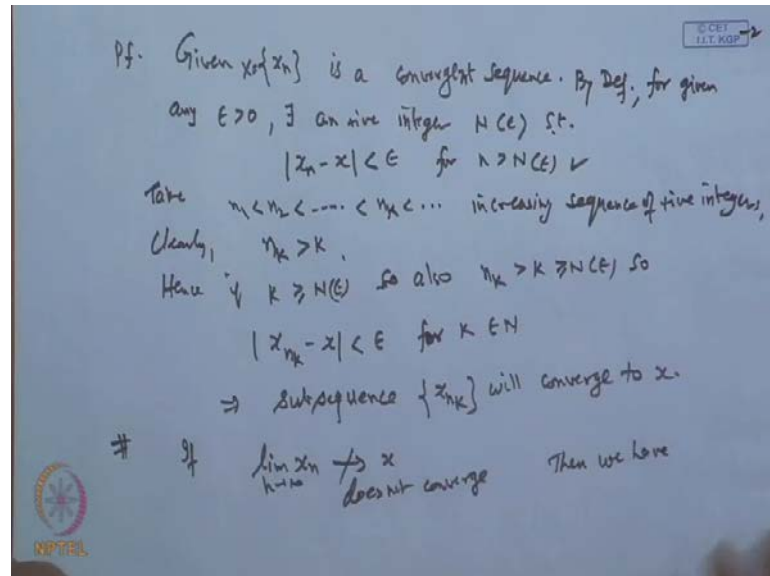 © CET
I.I.T. KGP
-2
Pf. Given X={xn} is a convergent sequence. By Def., for given
any ϵ>0, ∃ an +ive integer N(ϵ) s.t.
|xn - x| < ϵ for n ≥ N(ϵ) ✓
Take n1 < n2 < ---- < nk < ... increasing sequence of +ive integers,
Clearly, nk > k.
Hence if k ≥ N(ϵ) so also nk > k ≥ N(ϵ) so
|xnk - x| < ϵ for k ∈ N
⇒ subsequence {xnk} will converge to x.
# If lim xn ↛ x Then we have
n→∞ does not converge
NPTEL